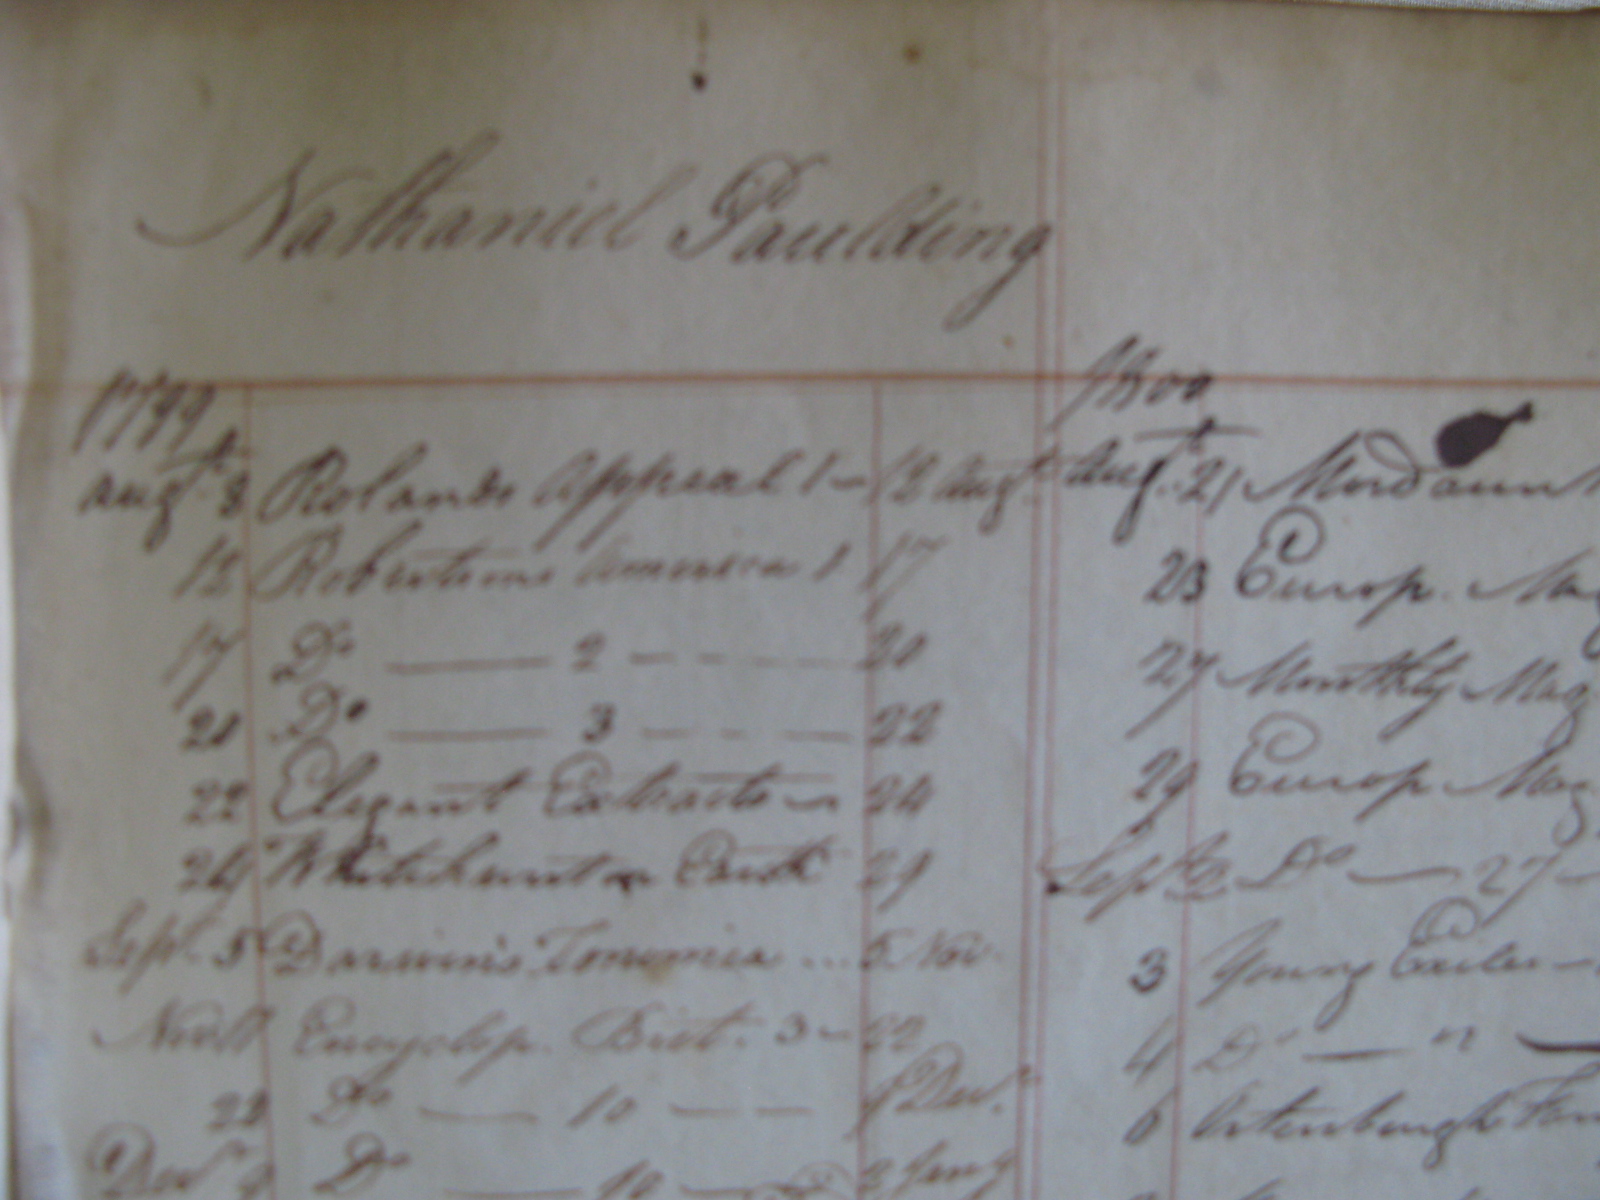 Nathaniel Paulding
1799
Augt. 8 Rolands Appeal 1 — 12 Augt
12 Robertsons America 1 17
17 Do —— 2 — — — 20
20 Do —— 3 — — — 22
22 Elegant Extracts — 24
24 Whitehurst on Earth 29
Sept. 5 Darwin's Zonomia ... 5 Nov.
Novr 11 Encyclop. Brit. 3 — 22
22 Do — 10 — — 9 Decr.
Decr 9 Do — 10 — 2 Jany
1800
Augt. 21 Mordaunt
23 Europ. Mag
27 Monthly Mag
29 Europ Mag
Sept 2 Do — 27 —
3 Young Exiles —
4 Do — " —
6